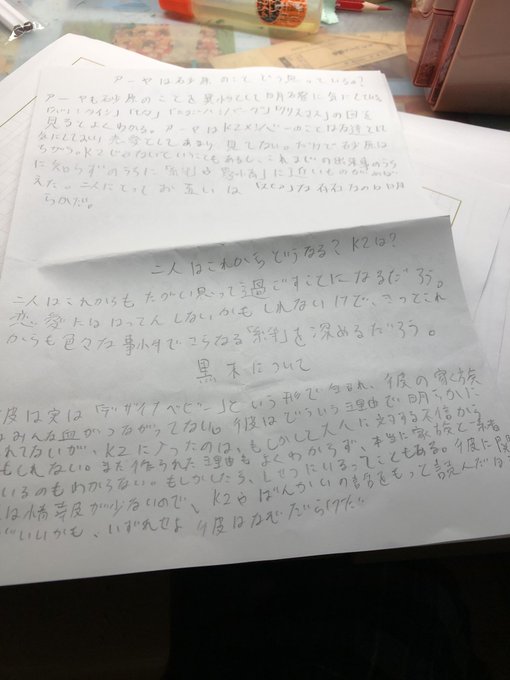 アーヤは砂原のことどう思っているの?
アーヤも砂原のことを異性として明確に気にしている
「バレンタイン」「」「ハロウィーン」「クリスマス」の回を
見るとよくわかる。アーヤはK2メンバーのことは友達として
気にしてない恋愛としてあまり見てない。だけど砂原は
ちがう。K2じゃないということもあるし、これまでの出来事のうち
に知らずのうちに「絆」や「」に近いものがめば
えた。二人にとってお互いは「」な存在なのは明
らかだ。
二人はこれからどうなる? K2は?
二人はこれからもたがい思って過ごすことになるだろう。
恋愛にははってんしないかもしれないけど、きっとこれ
からも色々な事件でさらなる「絆」を深めるだろう。
黒木について
彼は実は「デザイナーベビー」という形で生まれ、彼の家族
はみんな血がつながってない。彼はどういう理由で明らかに
れてないが、K2に入ったのは、もしかして大人に対する不信から
もしれない。また作られた理由もよくわからず、本当に家族と一緒
いるのもわからない。もしかしたら、しせつにいるってこともある。彼に関
は情報が少ないので、K2やばんがいの話をもって読んだほ
がいいかも、いずれせよ彼はなぞだらけだ